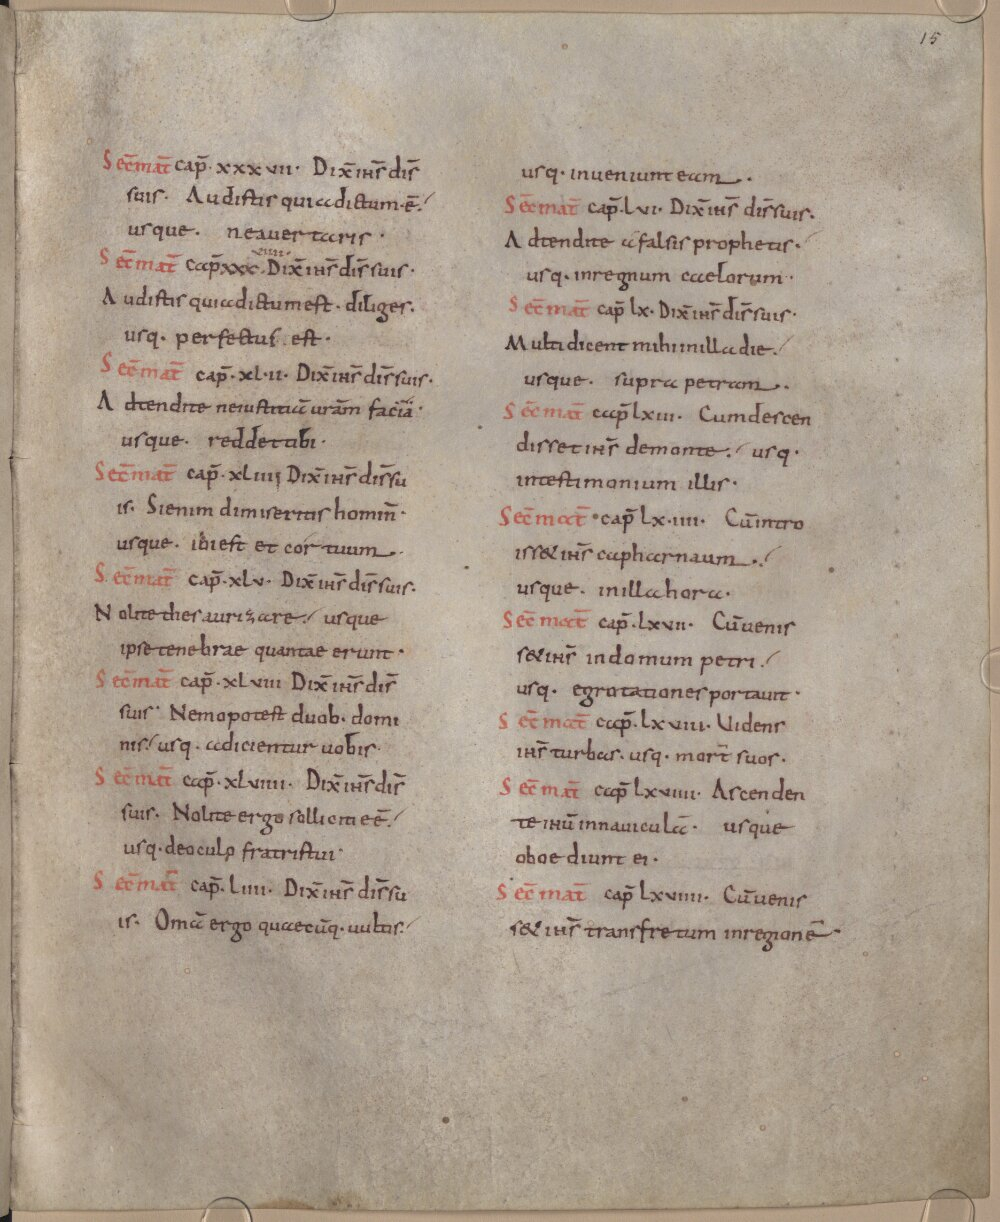 15
Sec̄ mat̄ cap̄. xxxvii. Dix̄ ih̄s dis̄
suis. Audistis quia dictum. ē.
usque. ne avertaris.
viiii.
Sec̄ mat̄ cap̄ xxx. Dix̄ ih̄s dis̄ suis.
Audistis quia dictum est. diliges.
usq. perfectus est.
Sec̄ mat̄ cap̄. xl.ii. Dix̄ ih̄s dis̄ suis.
Adtendite ne iustitiā urām faciā.
usque. reddet tibi.
Sec̄ mat̄ cap̄. xliiii Dix̄ ih̄s dis̄ su
is. Si enim dimiseritis homin̄.
usque. ibi est et cor tuum.
Sec̄ mat̄ cap̄. xlv. Dix̄ ih̄s dis̄ suis.
Nolite thesaurizare. usque
ipse tenebrae quantae erunt.
Sec̄ mat̄ cap̄. xlviii Dix̄ ih̄s dis̄
suis. Nemo potest duob. domi
nis. usq. adicientur vobis.
Sec̄ mat̄ cap̄. xlviiii. Dix̄ ih̄s dis̄
suis. Nolite ergo solliciti eē.
usq. de oculo fratris tui.
Sec̄ mat̄ cap̄. liiii. Dix̄ ih̄s dis̄ su
is. Omā ergo quaecūq. uultis.
usq. inveniunt eam.
Sec̄ mat̄ cap̄. lvi. Dix̄ ih̄s dis̄ suis.
Adtendite a falsis prophetis.
usq. in regnum caelorum.
Sec̄ mat̄ cap̄ lx. Dix̄ ih̄s dis̄ suis.
Multi dicent mihi in illa die.
usque. supra petram.
Sec̄ mat̄ cap̄ lxiii. Cum descen
disset ih̄s de monte. usq.
in testimonium illis.
Sec̄ mat̄ cap̄ lx.iiii. Cū intro
iss& ih̄s capharnaum.
usque. in illa hora.
Sec̄ mat̄ cap̄. lxvii. Cū venis
s& ih̄s in domum petri.
usq. egrotationes portavit.
Sec̄ mat̄ cap̄. lxviii. Uidens
ih̄s turbas. usq. mort̄ suos.
Sec̄ mat̄ cap̄ lxviiii. Ascenden
te ih̄u in naviculā. usque
oboediunt ei.
Sec̄ mat̄ cap̄ lxviiii. Cū venis
s& ih̄s trans fretum in regionē.